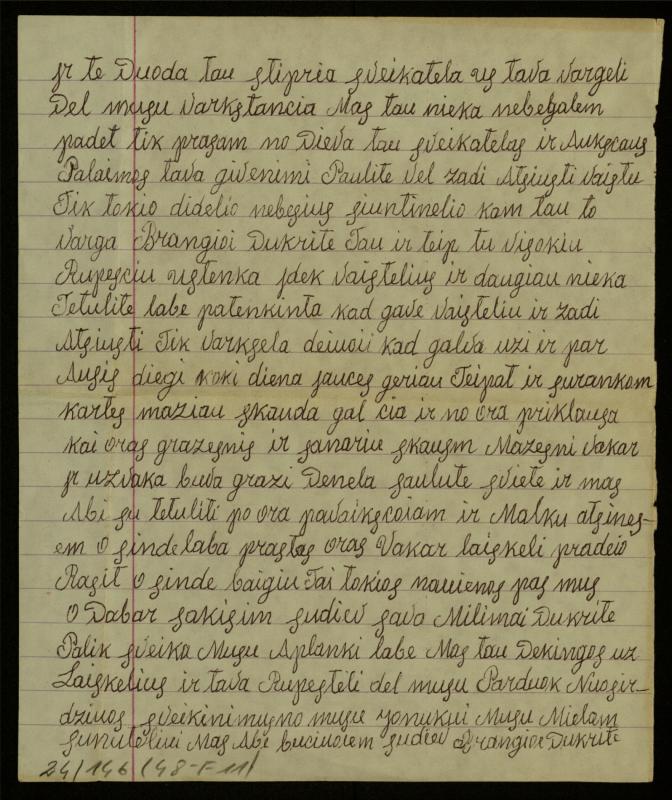 Jr te Duoda tau stipria sveikatela uz tava vargeli
Del musu varkstancia Mas tau nieka nebegalem
padet tik prasam no Dieva tau sveikatelas ir Aukscaus
Palaimos tava givenimi Paulite vel zadi Atsiusti vaistu
Tik tokio didelio nebesius siuntinelio kam tau to
varga Brangioi Dukrite Tau ir teip tu visokiu
Rupesciu ustenka jdek vaistelius ir daugiau nieka
Tetulite labe patenkinta kad gave vaisteliu ir zadi
Atsiusti Tik varksela deivoii kad galva uzi ir par
Ausis diegi koki diena jauces geriau Teipat ir surankom
kartes maziau skauda gal cia ir no ora priklausa
kai oras grazesnis ir sanariu skausm Mazesni vakar
jr uzvaka buva grazi Denela saulute sviete ir mas
Abi su tetuliti po ora pavaikscoiam ir Malku atsines-
em O sinde laba prastas oras Vakar laiskeli pradeio
Rasit O sinde baigiu Tai tokios nauienos pas mus
O Dabar sakisim sudiev sava Milimai Dukrite
Palik sveika Musu Aplanki labe Mas tau Dekingos uz
Laiskelius ir tava Rupesteli del musu Parduok Nuosir-
dziuos sveikinimus no musu yonukui Musu Mielam
sunuteliui Mas Abi buciuoiem sudiev Brangioi Dukrite
24/146 (48-F-11)